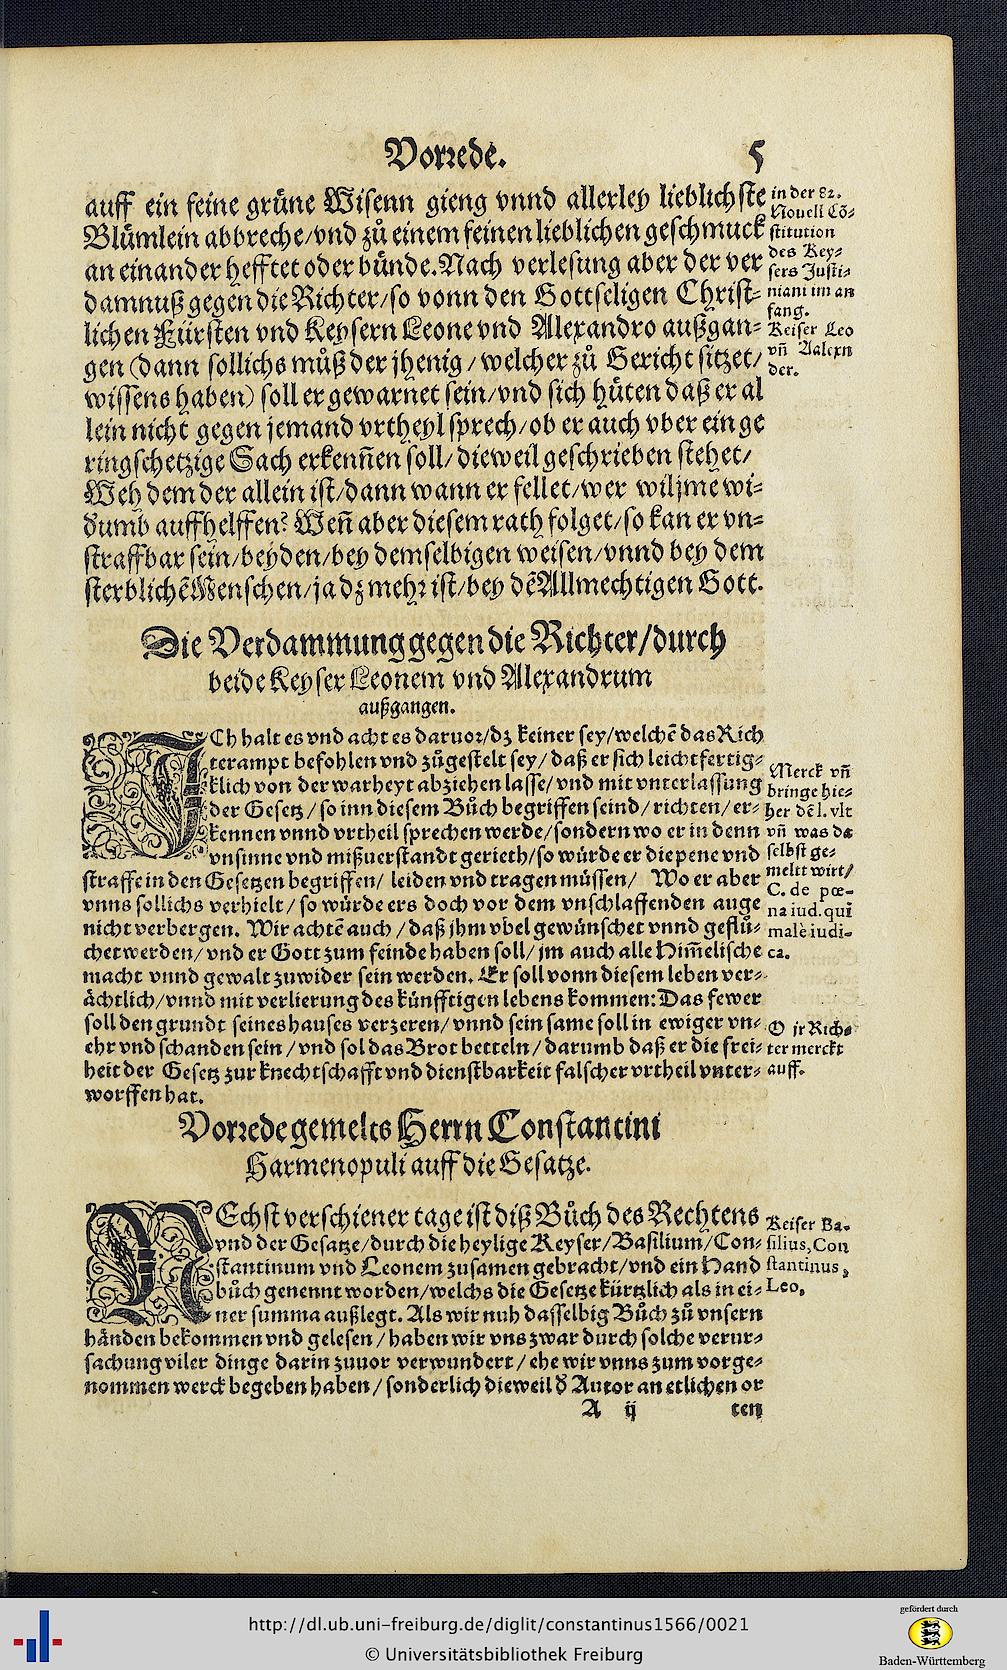 Vorrede.
5
auff ein feine grüne Wisenn gieng vnnd allerley lieblichste
Blümlein abbreche/vnd zů einem feinen lieblichen geschmuck
an einander hefftet oder bünde. Nach verlesung aber der ver
damnuß gegen die Richter/so vonn den Gottseligen Christ-
lichen Fürsten vnd Keysern Leone vnd Alexandro außgan-
gen (dann sollichs můß der jhenig/welcher zů Gericht sitzet/
wissens haben) soll er gewarnet sein/vnd sich hüten daß er al
lein nicht gegen jemand vrtheyl sprech/ob er auch vber ein ge
ringschetzige Sach erkenñen soll/dieweil geschrieben stehet/
Weh dem der allein ist/dann wann er fellet/wer wil jme wi-
dumb auffhelffen? Weñ aber diesem rath folget/so kan er vn-
straffbar sein/beyden/bey demselbigen weisen/vnnd bey dem
sterblichẽ Menschen/ja dz mehr ist/bey dẽ Allmechtigen Gott.
in der 82.
Nouell Cõ-
stitution
des Key-
sers Justi-
niani im an
fang.
Keiser Leo
vñ Aalexn
der.
Die Verdammung gegen die Richter/durch
beide Keyser Leonem vnd Alexandrum
außgangen.
ICh halt es vnd acht es daruor/dz keiner sey/welchẽ das Rich
terampt befohlen vnd zůgestelt sey/daß er sich leichtfertig-
klich von der warheyt abziehen lasse/vnd mit vnterlassung
der Gesetz/so inn diesem Bůch begriffen seind/richten/er-
kennen vnnd vrtheil sprechen werde/sondern wo er in denn
vnsinne vnd mißuerstandt gerieth/so würde er die pene vnd
straffe in den Gesetzen begriffen/ leiden vnd tragen müssen/ Wo er aber
vnns sollichs verhielt/so würde ers doch vor dem vnschlaffenden auge
nicht verbergen. Wir achtẽ auch/daß jhm vbel gewünschet vnnd geflů-
chet werden/vnd er Gott zum feinde haben soll/jm auch alle Him̃elische
macht vnnd gewalt zuwider sein werden. Er soll vonn diesem leben ver-
ächtlich/vnnd mit verlierung des künfftigen lebens kommen: Das fewer
soll den grundt seines hauses verzeren/vnnd sein same soll in ewiger vn-
ehr vnd schanden sein/vnd sol das Brot betteln/darumb daß er die frei-
heit der Gesetz zur knechtschafft vnd dienstbarkeit falscher vrtheil vnter-
worffen hat.
Merck vñ
bringe hie-
her dẽ l. vlt
vñ was da
selbst ge-
meltt wirt/
C. de pœ-
na iud. qui
malè iudi-
ca.
O jr Rich-
ter merckt
auff.
Vorrede gemelts Herrn Constantini
Harmenopuli auff die Gesatze.
NEchst verschiener tage ist diß Bůch des Rechtens
vnd der Gesatze/durch die heylige Keyser/Basilium/Con-
stantinum vnd Leonem zusamen gebracht/vnd ein Hand
bůch genennt worden/welchs die Gesetze kürtzlich als in ei-
ner summa außlegt. Als wir nuh dasselbig Bůch zů vnsern
händen bekommen vnd gelesen/haben wir vns zwar durch solche verur-
sachung viler dinge darin zuuor verwundert/ehe wir vnns zum vorge-
nommen werck begeben haben/sonderlich dieweil d̃ Autor an etlichen or
Keiser Ba-
silius, Con
stantinus,
Leo.
A ij
ten
http://dl.ub.uni-freiburg.de/diglit/constantinus1566/0021
© Universitätsbibliothek Freiburg
gefördert durch
Baden-Württemberg